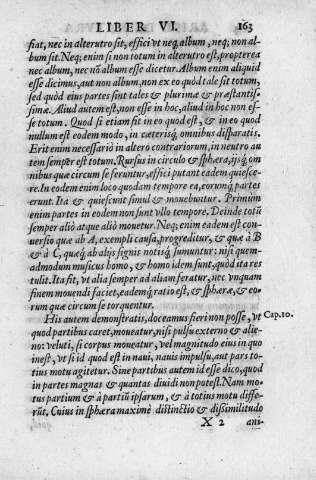 LIBER VI. 163
fiat, nec in alterutro sit, effici vt neq; album, neq; non al-
bum sit. Neq; enim si non totum in alterutro est, propterea
nec album, nec nõ album esse dicetur. Album enim aliquid
esse dicimus, aut non album, non ex eo quòd tale sit totum,
sed quòd eius partes sint tales & plurimæ & præstantis-
simæ. Aliud autem est, non esse in hoc, aliud in hoc non es-
se totum. Quod si etiam fit in eo quod est, & in eo quod
nullum est eodem modo, in cæterisq; omnibus disparatis.
Erit enim necessariò in altero contrariorum, in neutro au
tem semper est totum. Rursus in circulo & sphæra, ijsq; om
nibus quæ circum se feruntur, effici putant eadem quiesce-
re. In eodem enim loco quodam tempore ea, eorumq; partes
erunt. Ita & quiescunt simul & mouebuntur. Primum
enim partes in eodem non sunt vllo tempore. Deinde totũ
semper aliò atque aliò mouetur. Neq; enim eadem est con-
uersio quæ ab A, exempli causa, progreditur, & quæ à B
& à C, quæq; ab alijs signis notisq; sumuntur: nisi quem-
admodum musicus homo, & homo idem sunt, quòd ita res
tulit. Ita fit, vt alia semper ad aliam feratur, nec vnquam
finem mouendi faciet, eademq; ratio est, & sphæræ, & eo-
rum quæ circum se torquentur.
His autem demonstratis, doceamus fieri non posse, vt Cap. 10.
quod partibus caret, moueatur, nisi pulsu externo & alie-
no: veluti, si corpus mouetur, vel magnitudo eius in quo
inest, vt si id quod est in naui, nauis impulsu, aut pars to-
tius motu agitetur. Sine partibus autem id esse dico, quod
in partes magnas & quantas diuidi non potest. Nam mo-
tus partium & à partiũ ipsarum, & à totius motu diffe-
rũt. Cuius in sphæra maximè distinctio & dissimilitudo
X 2 ani-